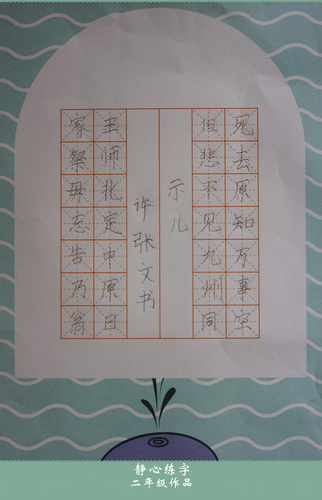 死去原知万事空
但悲不见九州同
示儿
许张文书
王师北定中原日
家祭毋忘告乃翁
静心练字
二年级作品